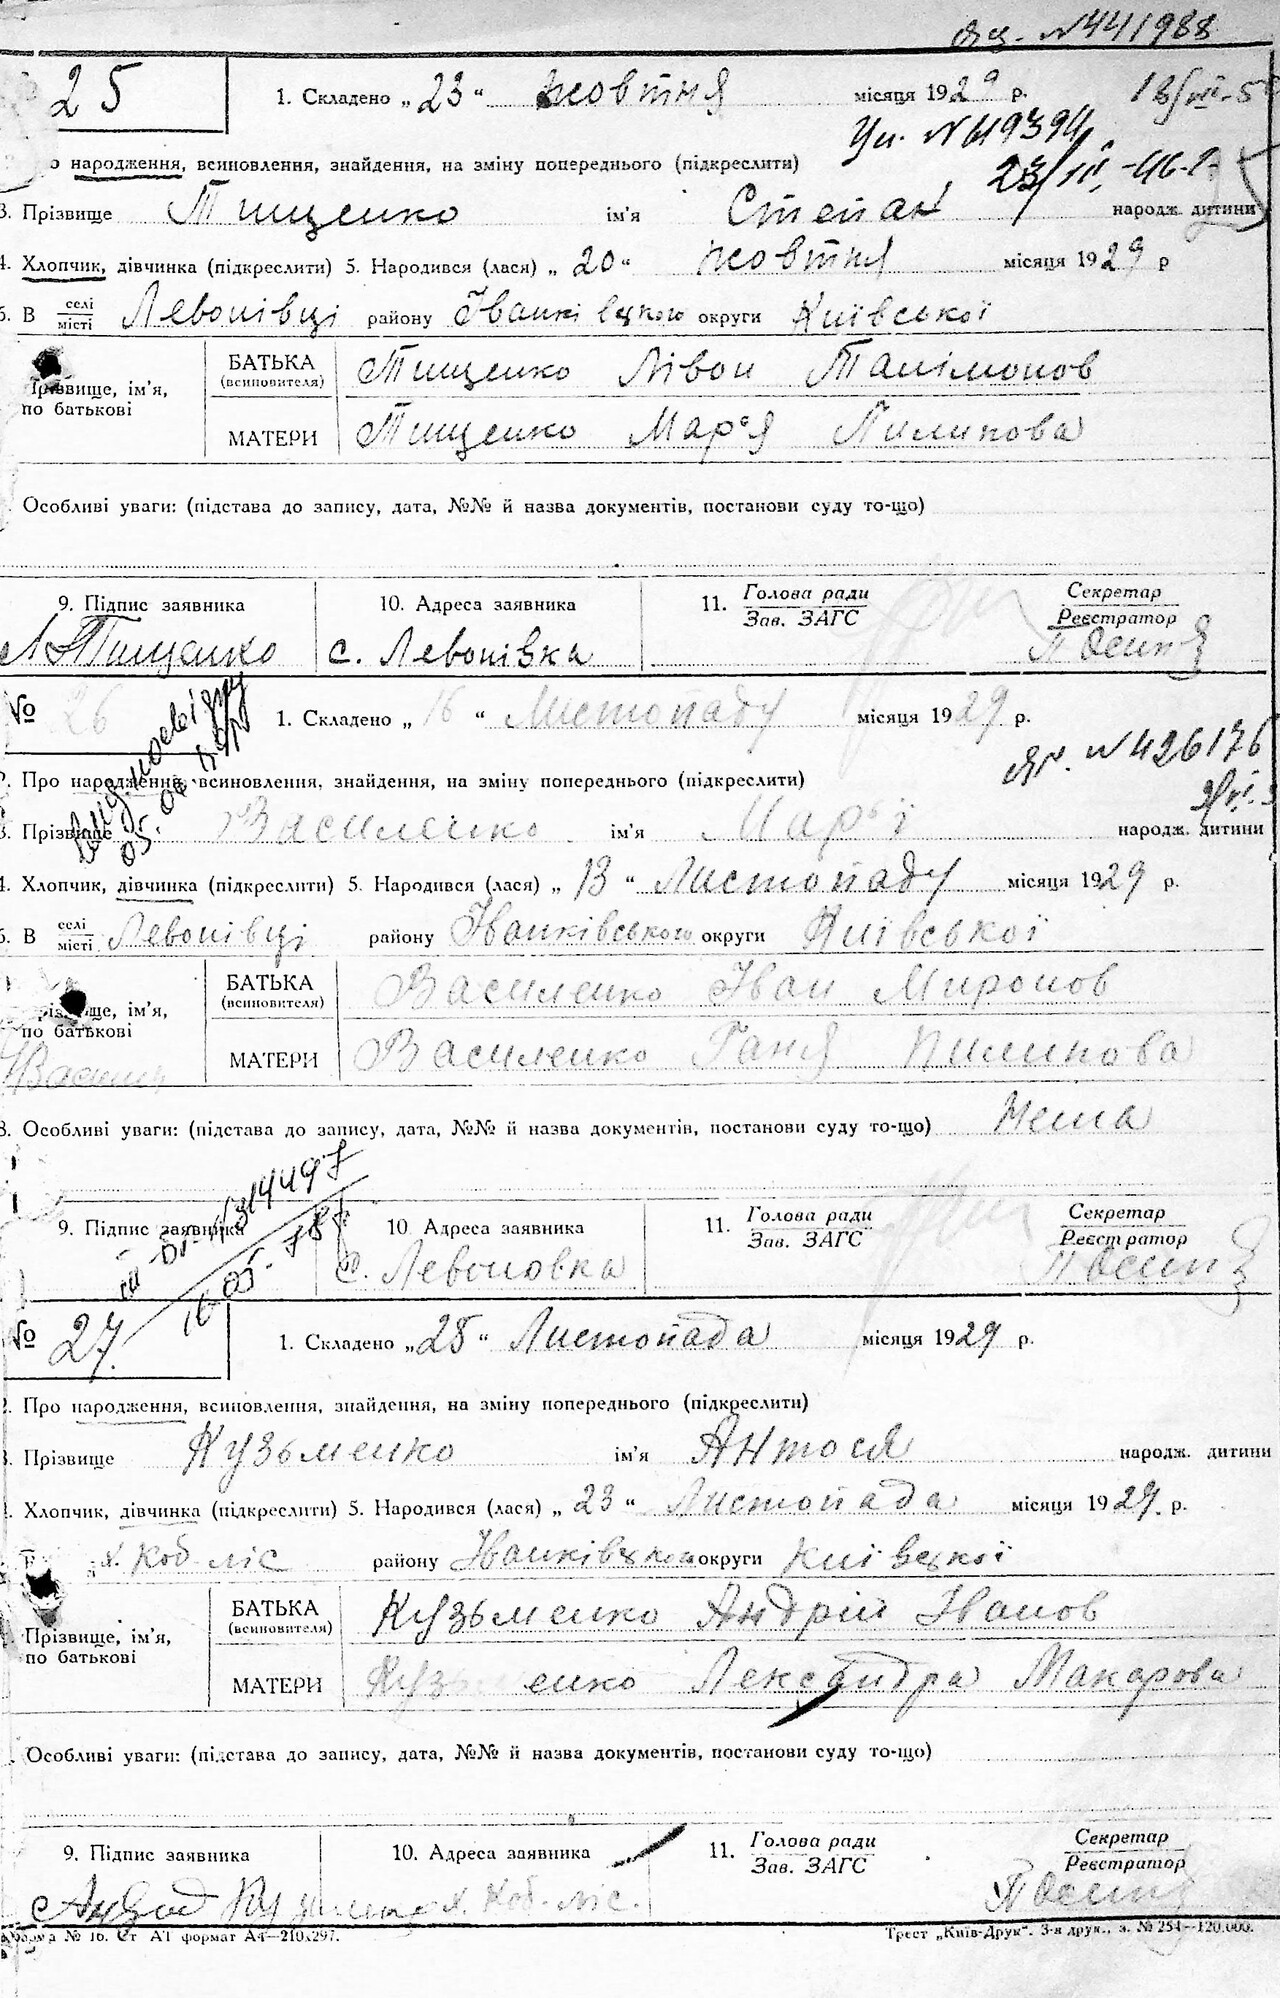 № 441988
25
1. Складено „ 23 “ жовтня місяця 1929 р.
№ 419394
народження, всиновлення, знайдення, на зміну попереднього (підкреслити)
23/III-46 р.
3. Прізвище Тищенко ім'я Степан народж. дитини
4. Хлопчик, дівчинка (підкреслити) 5. Народився (лася) „ 20 “ жовтня місяця 1929 р
6. В селі місті Левонівці району Іванківцкого округи Київської
Прізвище, ім'я, по батькові
БАТЬКА (всиновителя) Тищенко Лівон Талімонов
МАТЕРИ Тищенко Мар'я Пилипова
Особливі уваги: (підстава до запису, дата, №№ й назва документів, постанови суду то-що)
9. Підпис заявника 10. Адреса заявника 11. Голова ради Зав. ЗАГС Секретар Реєстратор
Тищенко с. Левонівка
№ 26 1. Складено „ 16 “ Листопаду місяця 1929 р.
№ 426176
2. Про народження, всиновлення, знайдення, на зміну попереднього (підкреслити)
3. Прізвище Василенко ім'я Мар'ї народж. дитини
4. Хлопчик, дівчинка (підкреслити) 5. Народився (лася) „ 13 “ Листопаду місяця 1929 р.
6. В селі місті Левонівці району Іванківського округи Київської
Прізвище, ім'я, по батькові
БАТЬКА (всиновителя) Василенко Іван Миронов
МАТЕРИ Василенко Ганя Пилипова
8. Особливі уваги: (підстава до запису, дата, №№ й назва документів, постанови суду то-що) Нема
9. Підпис заявника 10. Адреса заявника 11. Голова ради Зав. ЗАГС Секретар Реєстратор
с. Левоновка
№ 27. 1. Складено „ 25 “ Листопада місяця 1929 р.
2. Про народження, всиновлення, знайдення, на зміну попереднього (підкреслити)
3. Прізвище Кузьменко ім'я Антося народж. дитини
Хлопчик, дівчинка (підкреслити) 5. Народився (лася) „ 23 “ Листопада місяця 1929. р.
х. Коб-ліс району Іванківцкого округи Київцкої
Прізвище, ім'я, по батькові
БАТЬКА (всиновителя) Кузьменко Андрій Іванов
МАТЕРИ Кузьменко Лександра Макарова
Особливі уваги: (підстава до запису, дата, №№ й назва документів, постанови суду то-що)
9. Підпис заявника 10. Адреса заявника 11. Голова ради Зав. ЗАГС Секретар Реєстратор
х. Коб-ліс.
Форма № 16. Ст А1 формат А4—210х297. Трест „Київ-Друк“. 3-я друк., з. № 254—120.000.